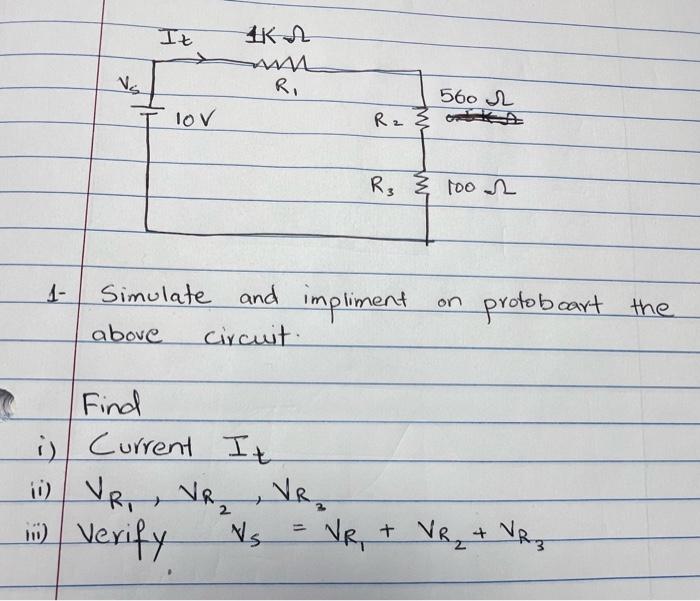 It 1K Ω
Vs R1
10V
560 Ω
R2
R3 100 Ω
1- Simulate and impliment on protoboart the
above circuit.
Find
i) Current It
ii) VR1 , VR2 , VR3
iii) Verify Vs = VR1 + VR2 + VR3